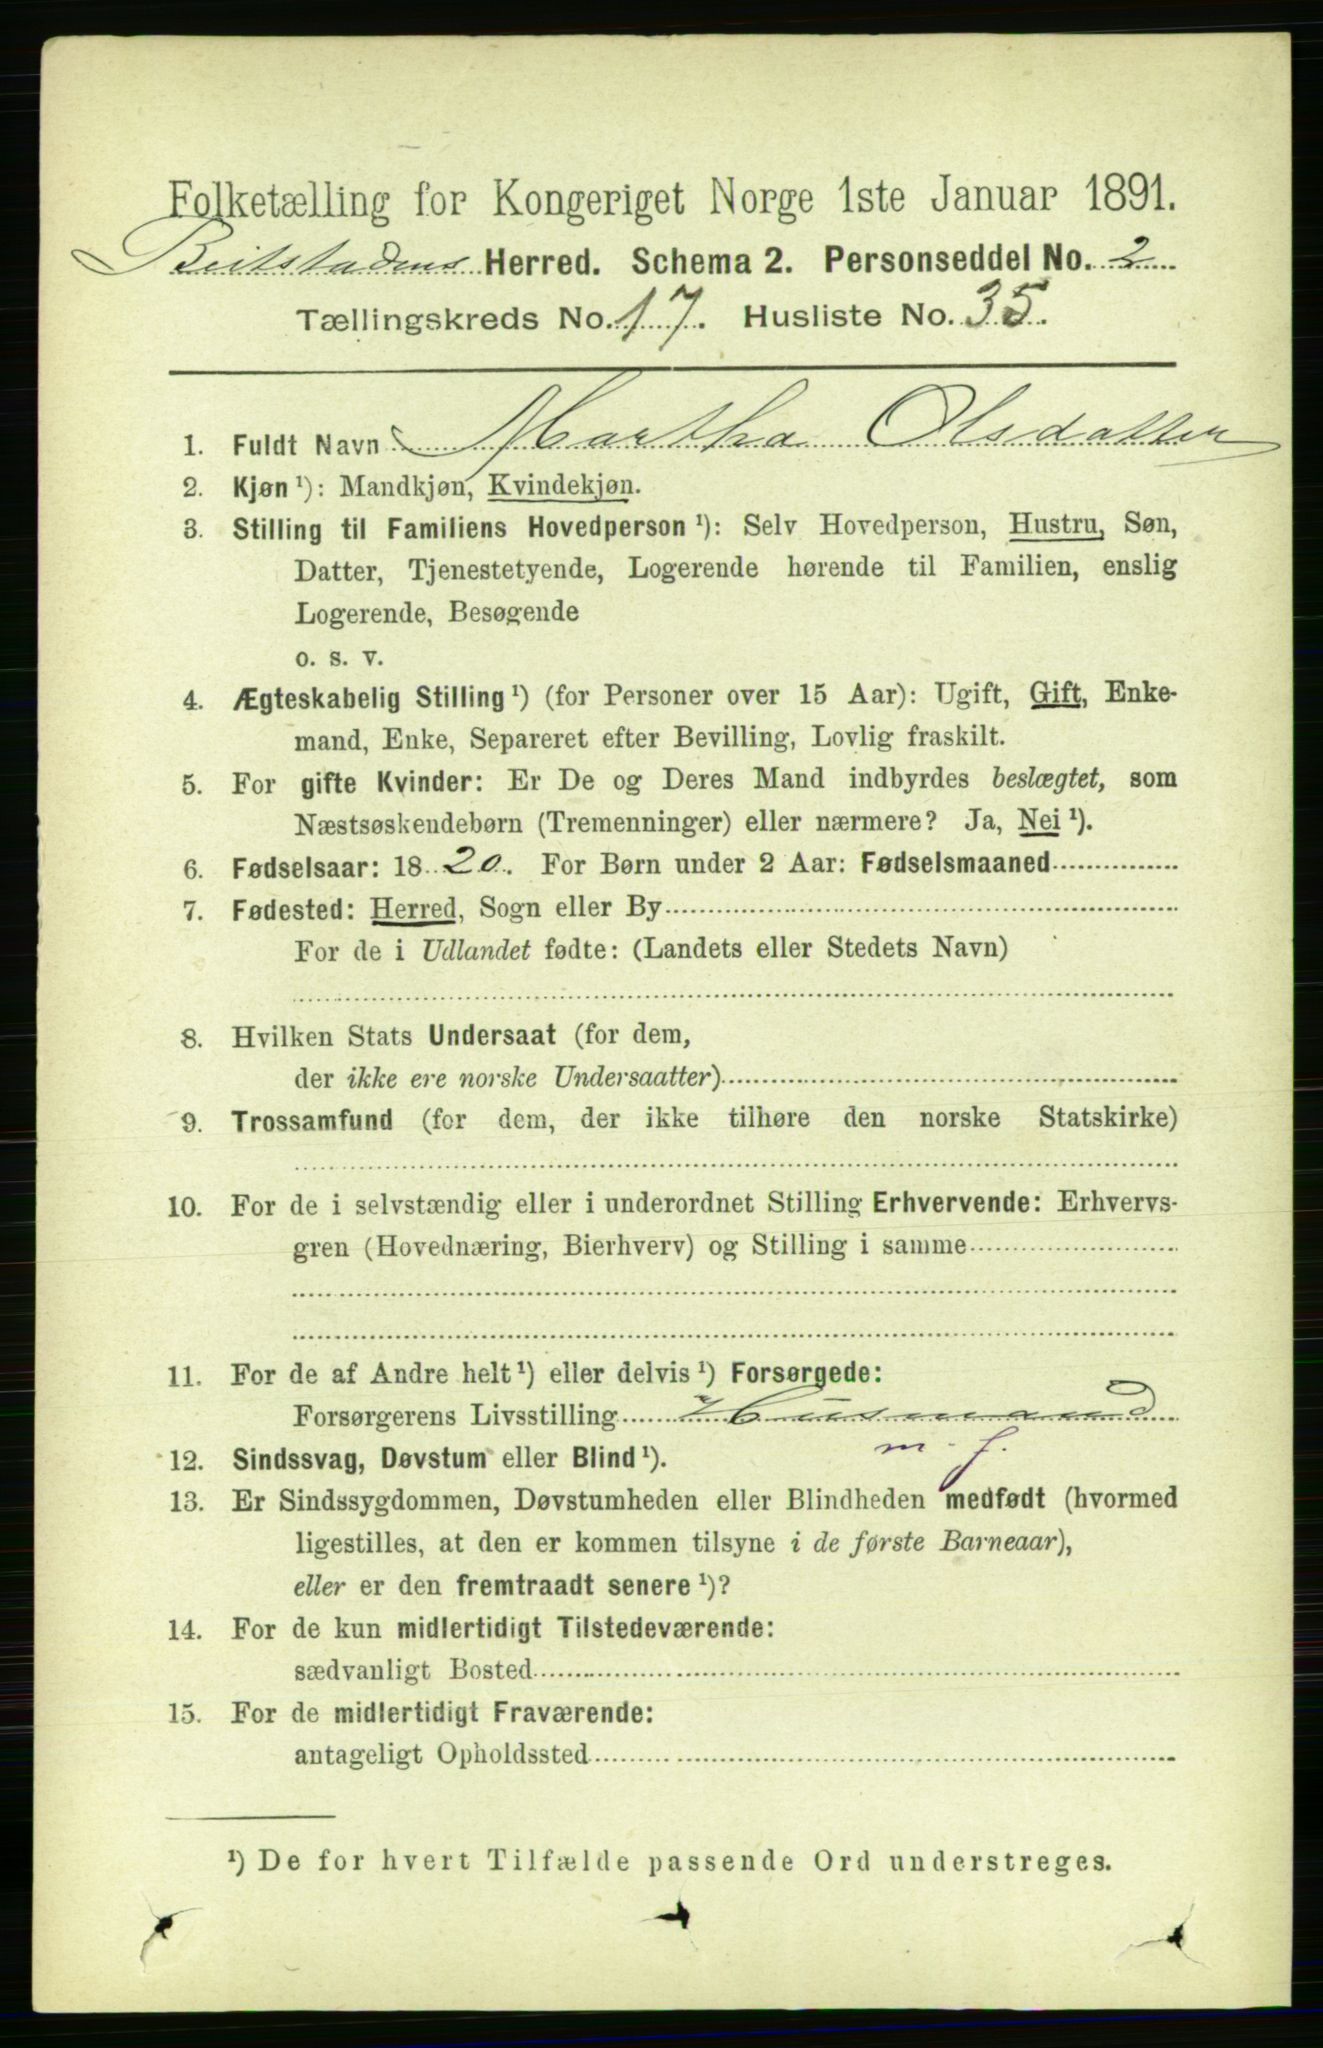 Folketælling for Kongeriget Norge 1ste Januar 1891.
Beitstadens Herred. Schema 2. Personseddel No. 2
Tællingskreds No. 17. Husliste No. 35.
1. Fuldt Navn Martha Olsdatter
2. Kjøn ¹): Mandkjøn, Kvindekjøn.
3. Stilling til Familiens Hovedperson ¹): Selv Hovedperson, Hustru, Søn,
Datter, Tjenestetyende, Logerende hørende til Familien, enslig
Logerende, Besøgende
o. s. v.
4. Ægteskabelig Stilling ¹) (for Personer over 15 Aar): Ugift, Gift, Enke-
mand, Enke, Separeret efter Bevilling, Lovlig fraskilt.
5. For gifte Kvinder: Er De og Deres Mand indbyrdes beslægtet, som
Næstsøskendebørn (Tremenninger) eller nærmere? Ja, Nei ¹).
6. Fødselsaar: 18 20. For Børn under 2 Aar: Fødselsmaaned
7. Fødested: Herred, Sogn eller By
For de i Udlandet fødte: (Landets eller Stedets Navn)
8. Hvilken Stats Undersaat (for dem,
der ikke ere norske Undersaatter)
9. Trossamfund (for dem, der ikke tilhøre den norske Statskirke)
10. For de i selvstændig eller i underordnet Stilling Erhvervende: Erhvervs-
gren (Hovednæring, Bierhverv) og Stilling i samme
11. For de af Andre helt ¹) eller delvis ¹) Forsørgede:
Forsørgerens Livsstilling Husmand
m. f.
12. Sindssvag, Døvstum eller Blind ¹).
13. Er Sindssygdommen, Døvstumheden eller Blindheden medfødt (hvormed
ligestilles, at den er kommen tilsyne i de første Barneaar),
eller er den fremtraadt senere ¹)?
14. For de kun midlertidigt Tilstedeværende:
sædvanligt Bosted
15. For de midlertidigt Fraværende:
antageligt Opholdssted
¹) De for hvert Tilfælde passende Ord understreges.